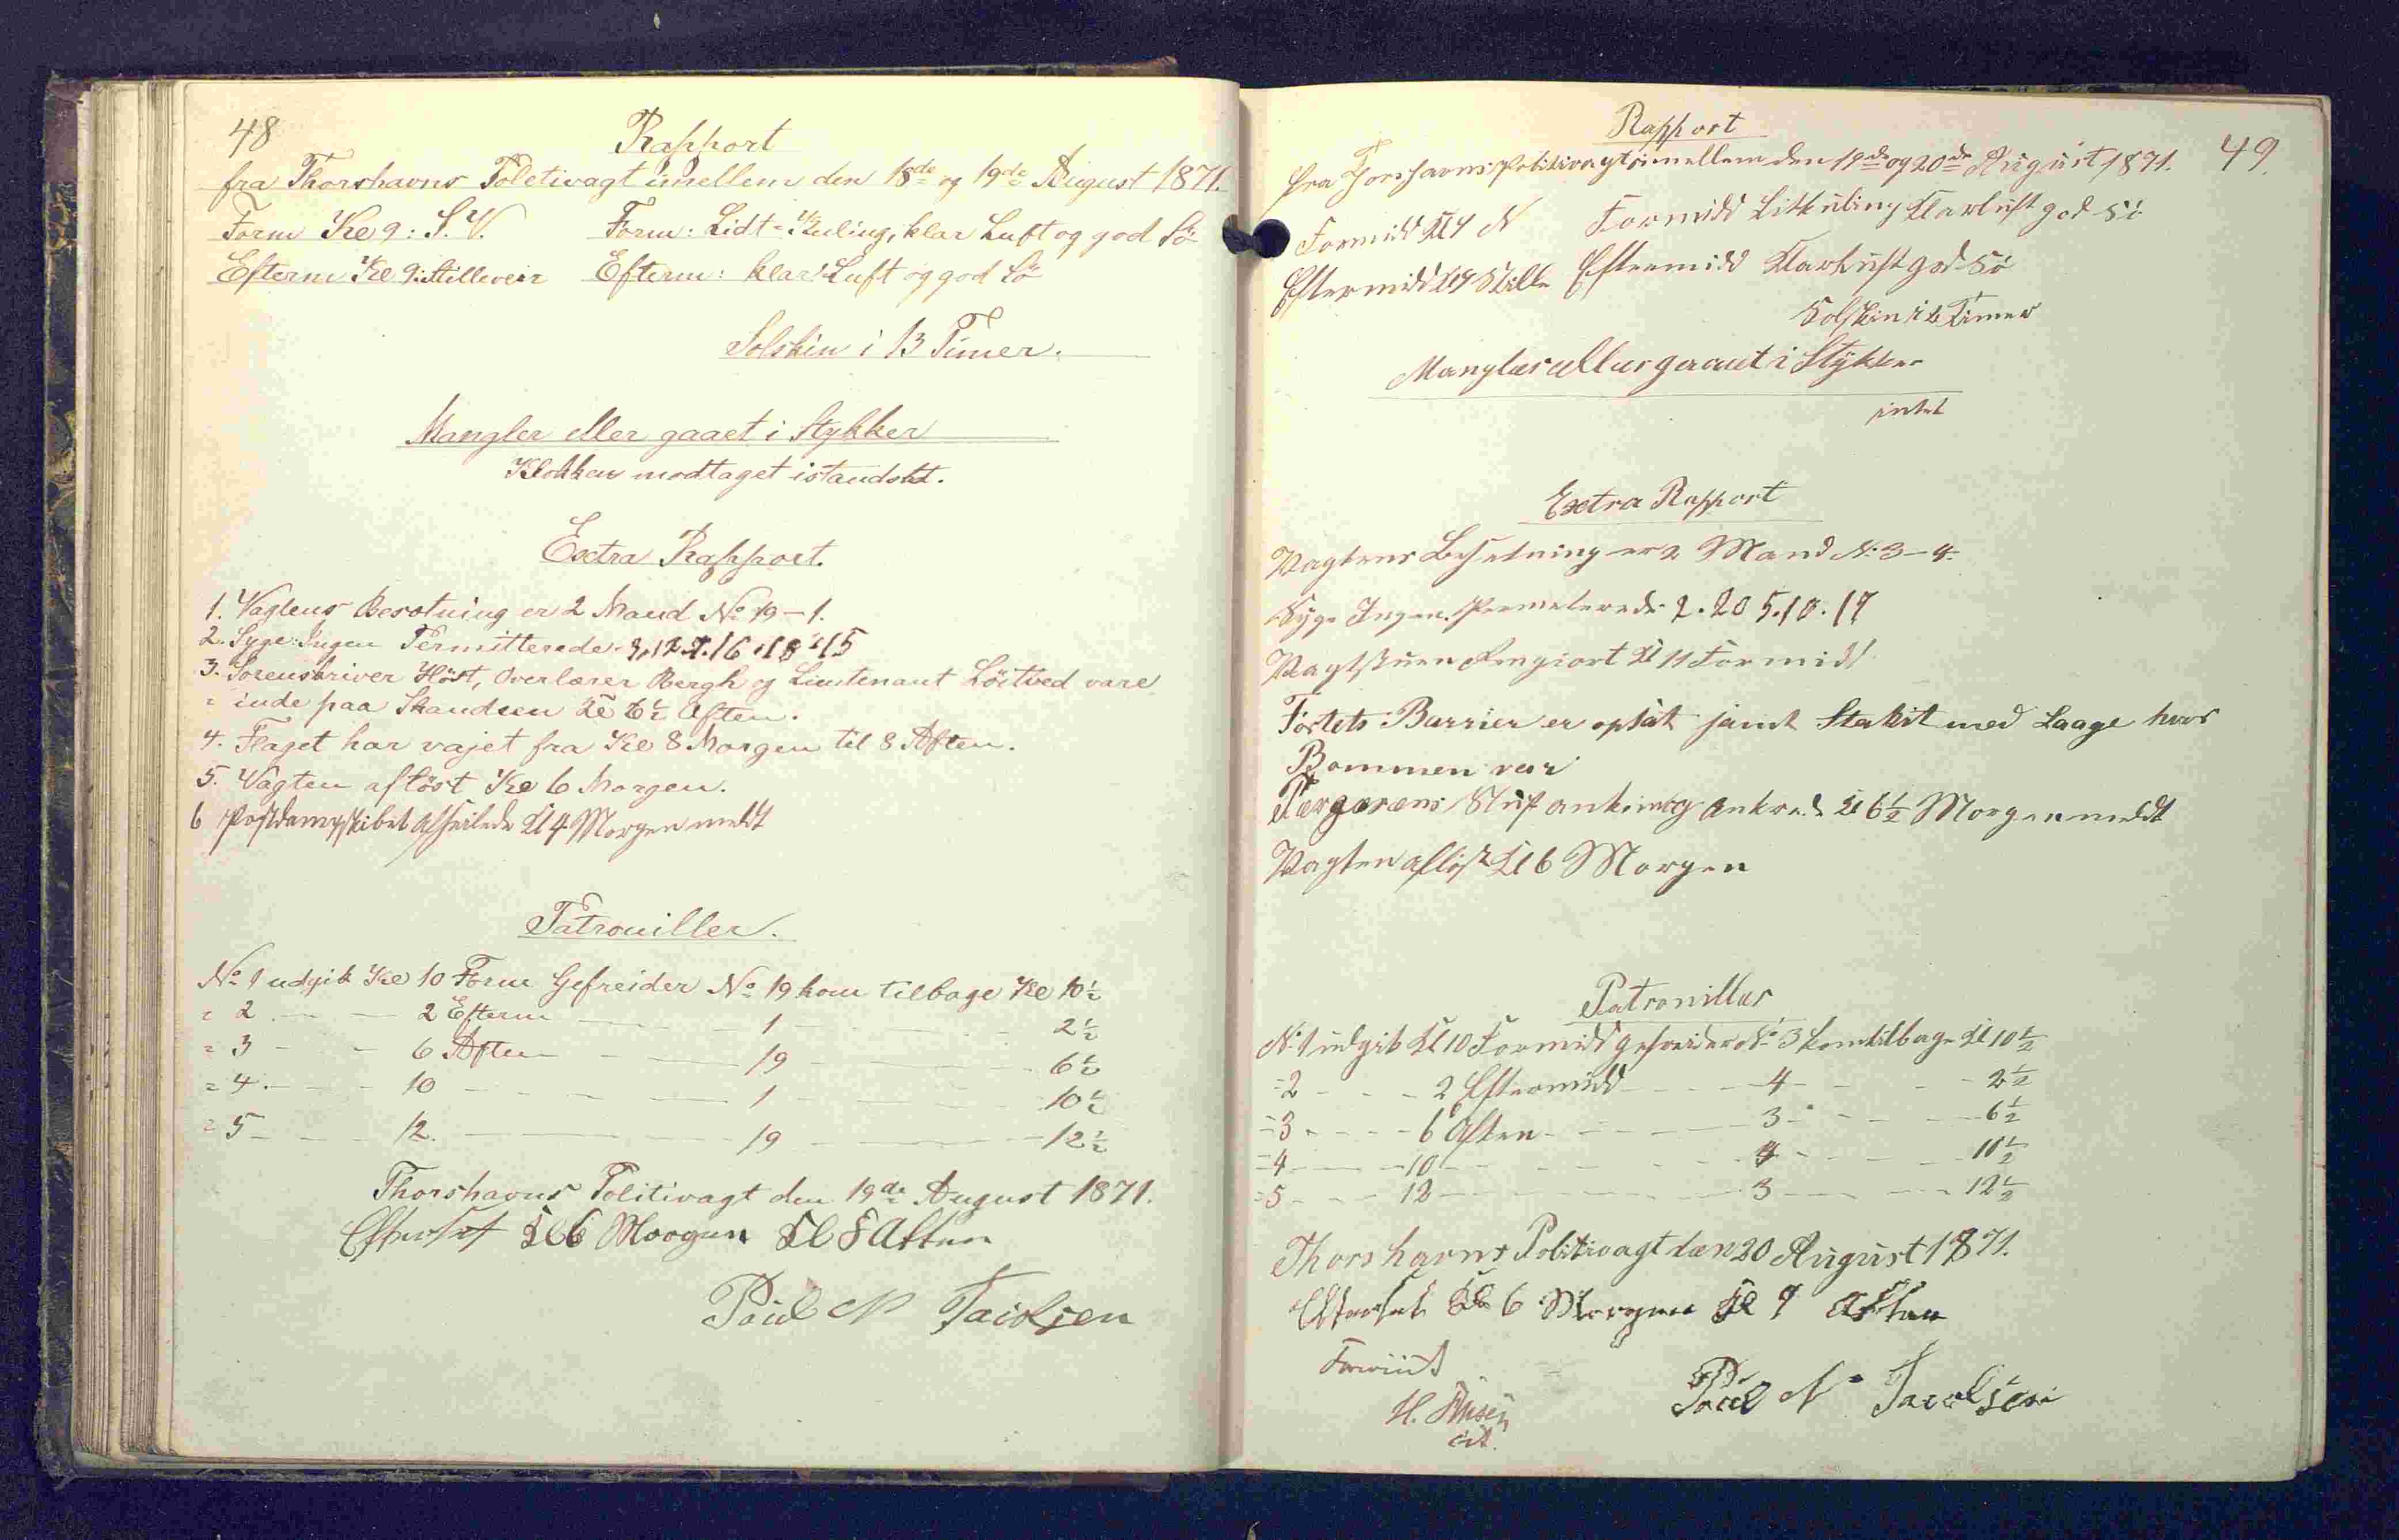 48
Rapport
fra Thorshavns Politivagt imellem den 18de og 19de August 1871.
Form Kl 9: S.V. Form: Lidt Kuling, klar Luft og god Sö
Efterm Kl 9: Stilleveir Efterm: klar Luft og god Sö
Solskin i 13 Timer.
Mangler eller gaaet i Stykker
Klokken modtaget istandsat.
Extra Rapport.
1. Vagtens Besætning er 2 Mand No 19 - 1.
2. Syge: Ingen Permitterede 16 18 15
3. Sorenskriver Höst, Overlærer Bergh og Lieutenant Löitved vare
inde paa Skandsen Kl 6½ Aften.
4. Flaget har vajet fra Kl 8 Morgen til 8 Aften.
5. Vagten aflöst Kl 6 Morgen.
6 Postdampskibet afseilede Kl 4 Morgen meldt
Patrouiller.
No 1 udgik Kl 10 Form Gefreider No 19 kom tilbage Kl 10½
= 2 - - 2 Efterm - - 1 - - 2½
= 3 - - 6 Aften - - 19 - - 6½
= 4 - - 10 - - 1 - - 10½
= 5 - - 12 - - 19 - - 12½
Thorshavns Politivagt den 19de August 1871.
Efterset Kl 6 Morgen Kl 8 Aften
Poul N Jacobsen
49.
Rapport
fra Thorshavns Politivagt imellem den 19de og 20de August 1871.
Formidd Kl 9 N Formidd Litkuling Klarluft god Sö
Eftermidd Kl 9 Stille Eftermidd Klarluft god Sö
Solskin i Timer
Mangler eller gaaet i Stykker
intet
Extra Rapport
Vagtens Besetning er 2 Mand No 3 - 4.
Syge Ingen. Permeterede 2. 20 5. 18. 17
Vagtstuen Rengiort Kl 11 Formidd
Fortets Barrier er opsat samt Stakit med Laage hvor
Bommen var
Slup ankom og Ankrede Kl 6½ Morgen meldt
Vagten aflöst Kl 6 Morgen
Patrouiller
No 1 udgik Kl 10 Formidd gefreider No 3 kom tilbage Kl 10½
=2 - - 2 Eftermidd - - 4 - - 2½
=3 - - 6 Aften - - 3 - - 6½
=4 - - 10 - - 4 - - 10½
=5 - - 12 - - 3 - - 12½
Thorshavns Politivagt den 20 August 1871.
Efterset Kl 6 Morgen Kl 9 Aften
Poul N Jacobsen
H.